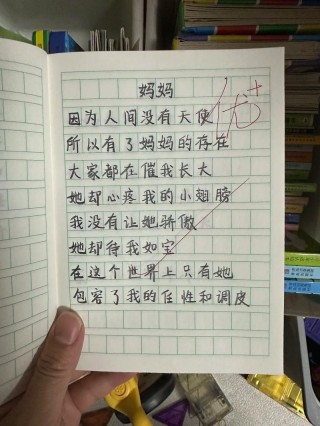 妈妈
因为人间没有天使
所以有了妈妈的存在
大家都在催我长大
她却心疼我的小翅膀
我没有让她骄傲
她却待我如宝
在这个世界上只有她
包容了我的任性和调皮
优+